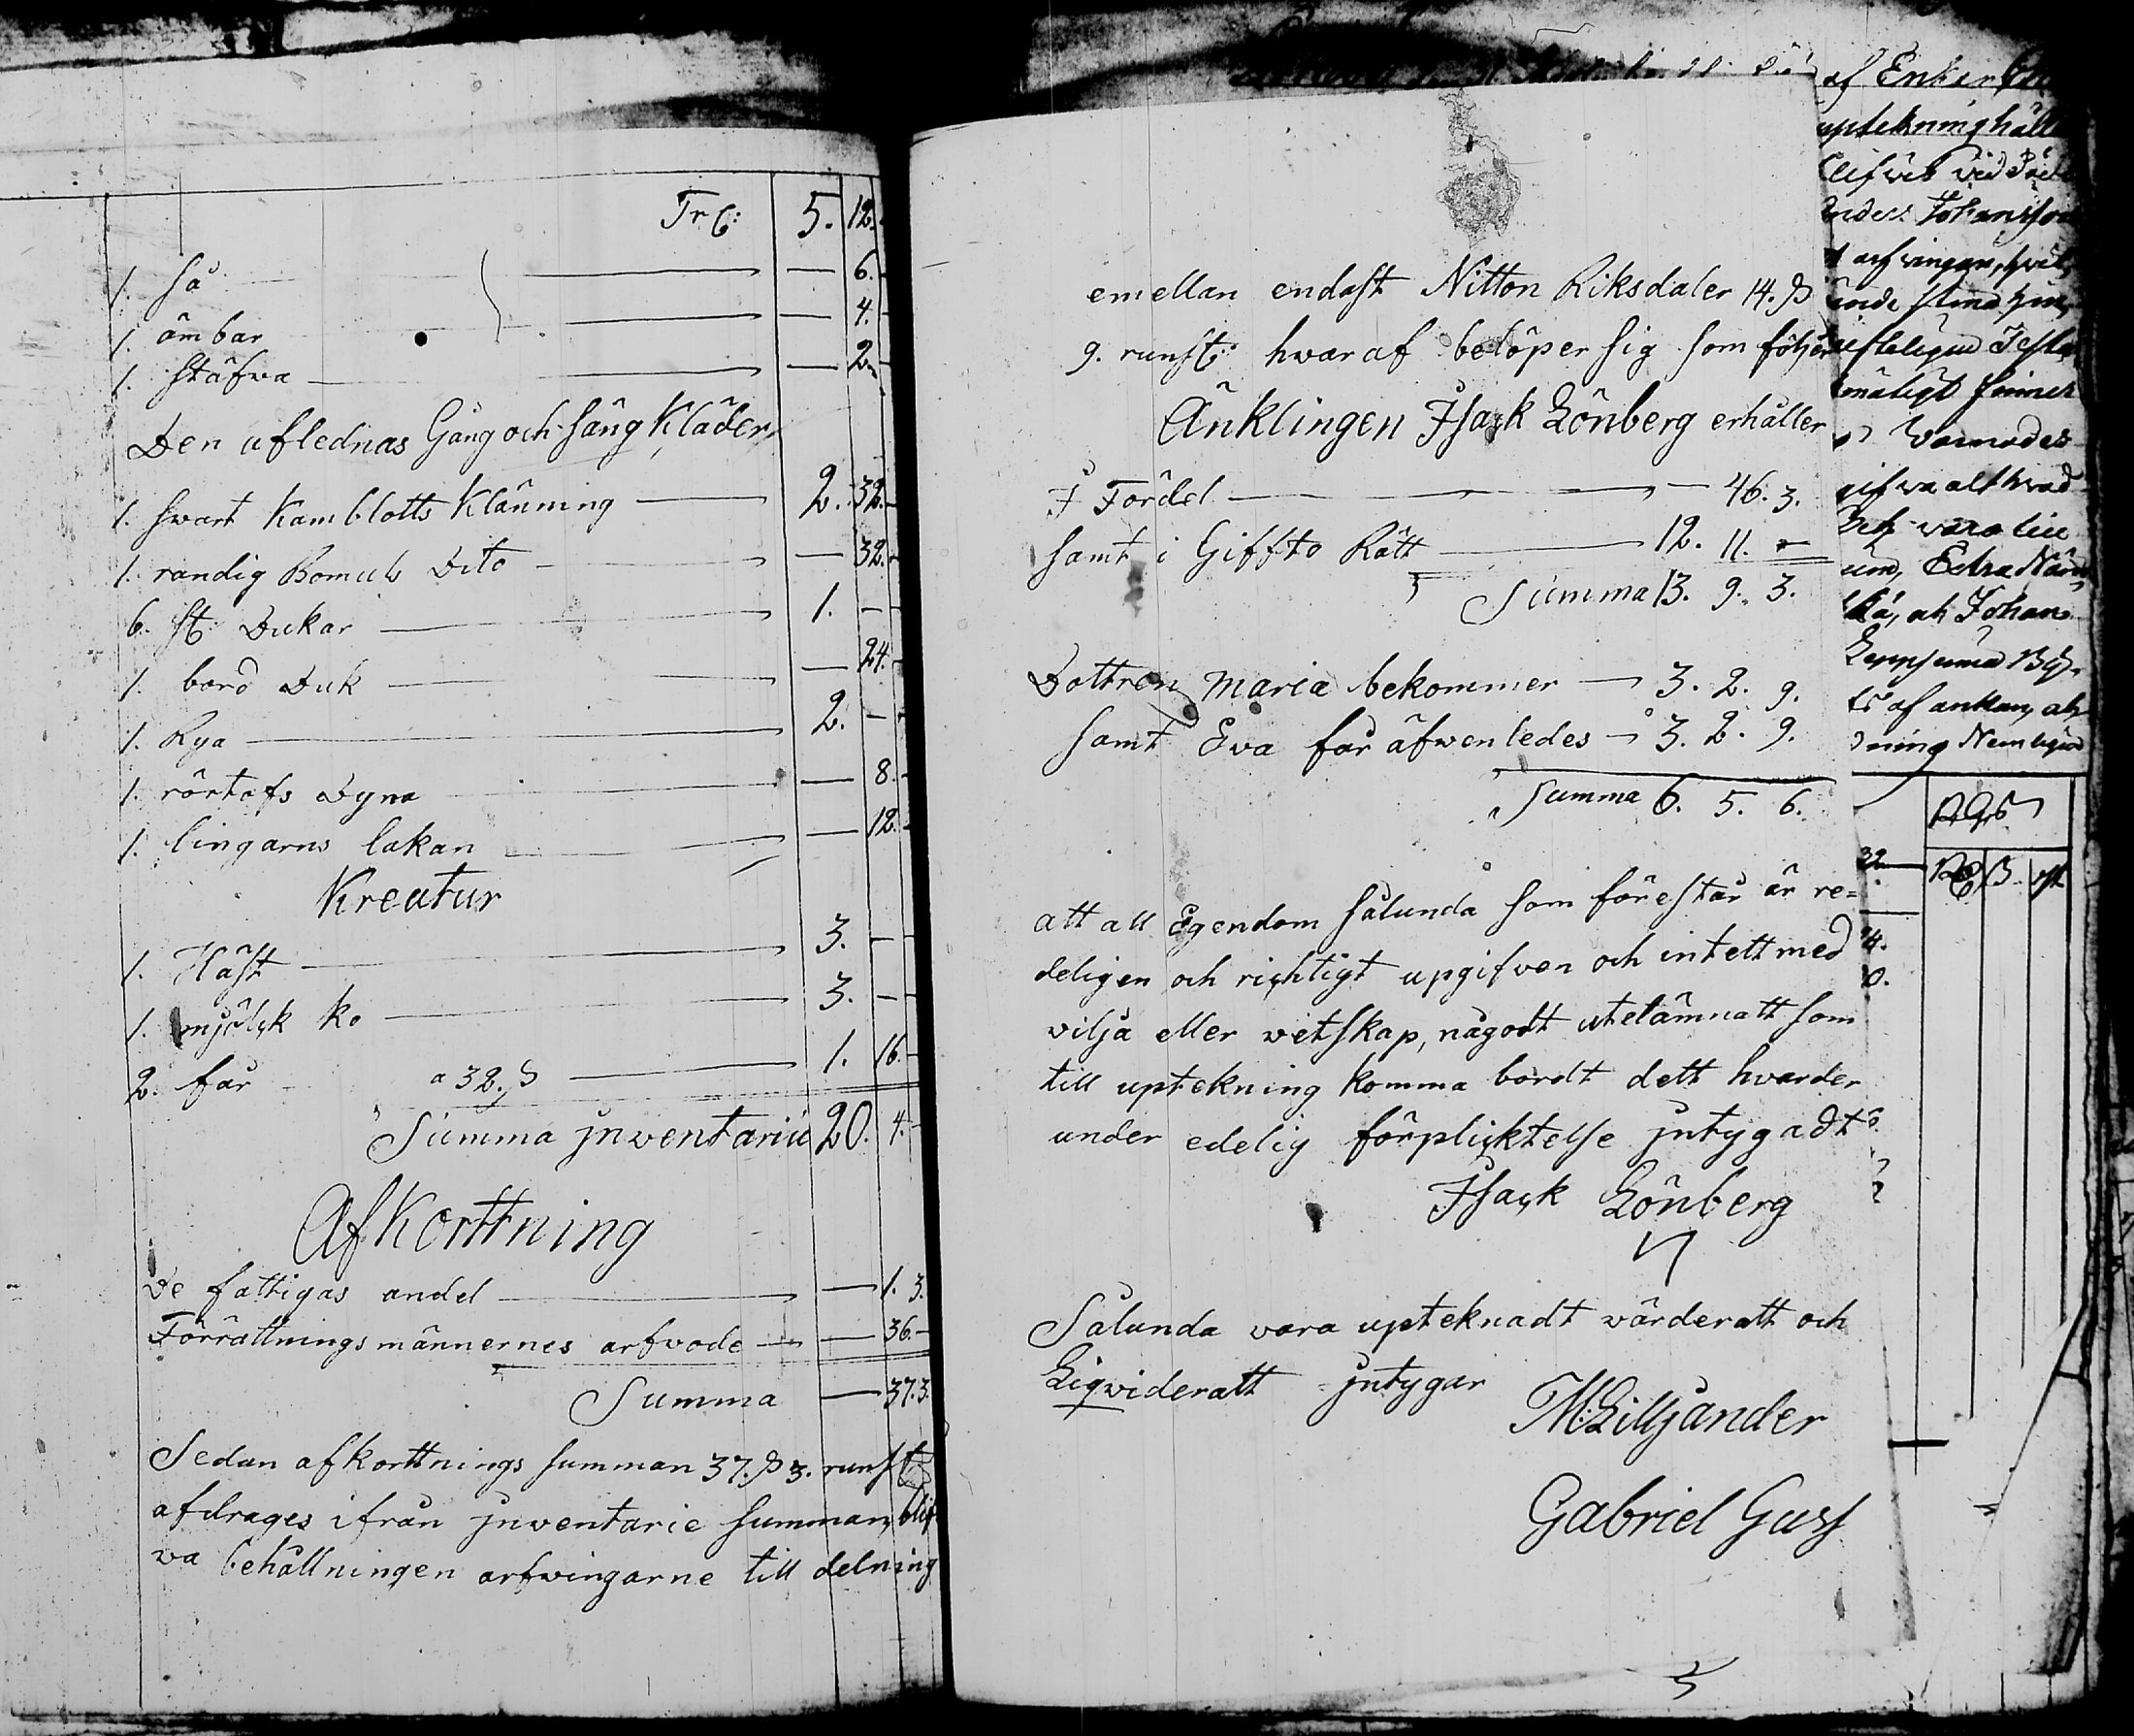 Tr G: 5. 12.
1. så — 6. -
1. ämbar — 4. -
1. ståfwa — 2. -
Den aflednas Gång och säng Kläder
1. swart Kamblotts Klänning — 2. 32. -
1. randig Bomuls Dito — 32. -
6. st: Dukar — 1. - -
1. bord Duk — 24. -
1. Rya — 2. - -
1. rörtofs Dyna — 8. -
1. lingarns lakan — 12. -
Kreatur
1. Häst — 3. - -
1. mjölk ko — 3. - -
2. får a 32. ß — 1. 16. -
Summa jnwentarii 20. 4. -
Afkorttning
De fattigas andel — 1. 3.
Förrättningsmännernes arfvode — 36. -
Summa — 37. 3.
Sedan afkorttnings summan 37. ß 3. runst
afdrages ifrån jnwentarie summan, blif
va behållningen arfwingarne till delning
emellan endast Nitton Riksdaler 14. ß
9. runst: hwaraf belöper sig som följer
Änklingen Jsack Lönberg erhåller
J Fördel — 46. 3.
samt i Giffto Rätt — 12. 11. -
Summa 13. 9. 3.
Dottren Maria bekommer — 3. 2. 9.
samt Eva får äfwenledes — 3. 2. 9.
Summa 6. 5. 6.
att all Egendom sålunda som förestår är re=
deligen och richtigt upgifven och intett med
vilja eller wetskap, någodt utelämnatt som
till uptekning komma bordt dett hvarder
under edelig förplicktelse jntygadt
Jsack Lönberg
Sålunda vara upteknadt wärderatt och
Liqvideratt jntygar
M: Lilljander
Gabriel Gass
af Enkan
uptekning hålle
blifwit wid
Johansson
arfwingar,
maligt finnes
gifwa alt hvad
vara
Johan
af ankan, at
Nemligen
32
4.
0.
Rd ß rst